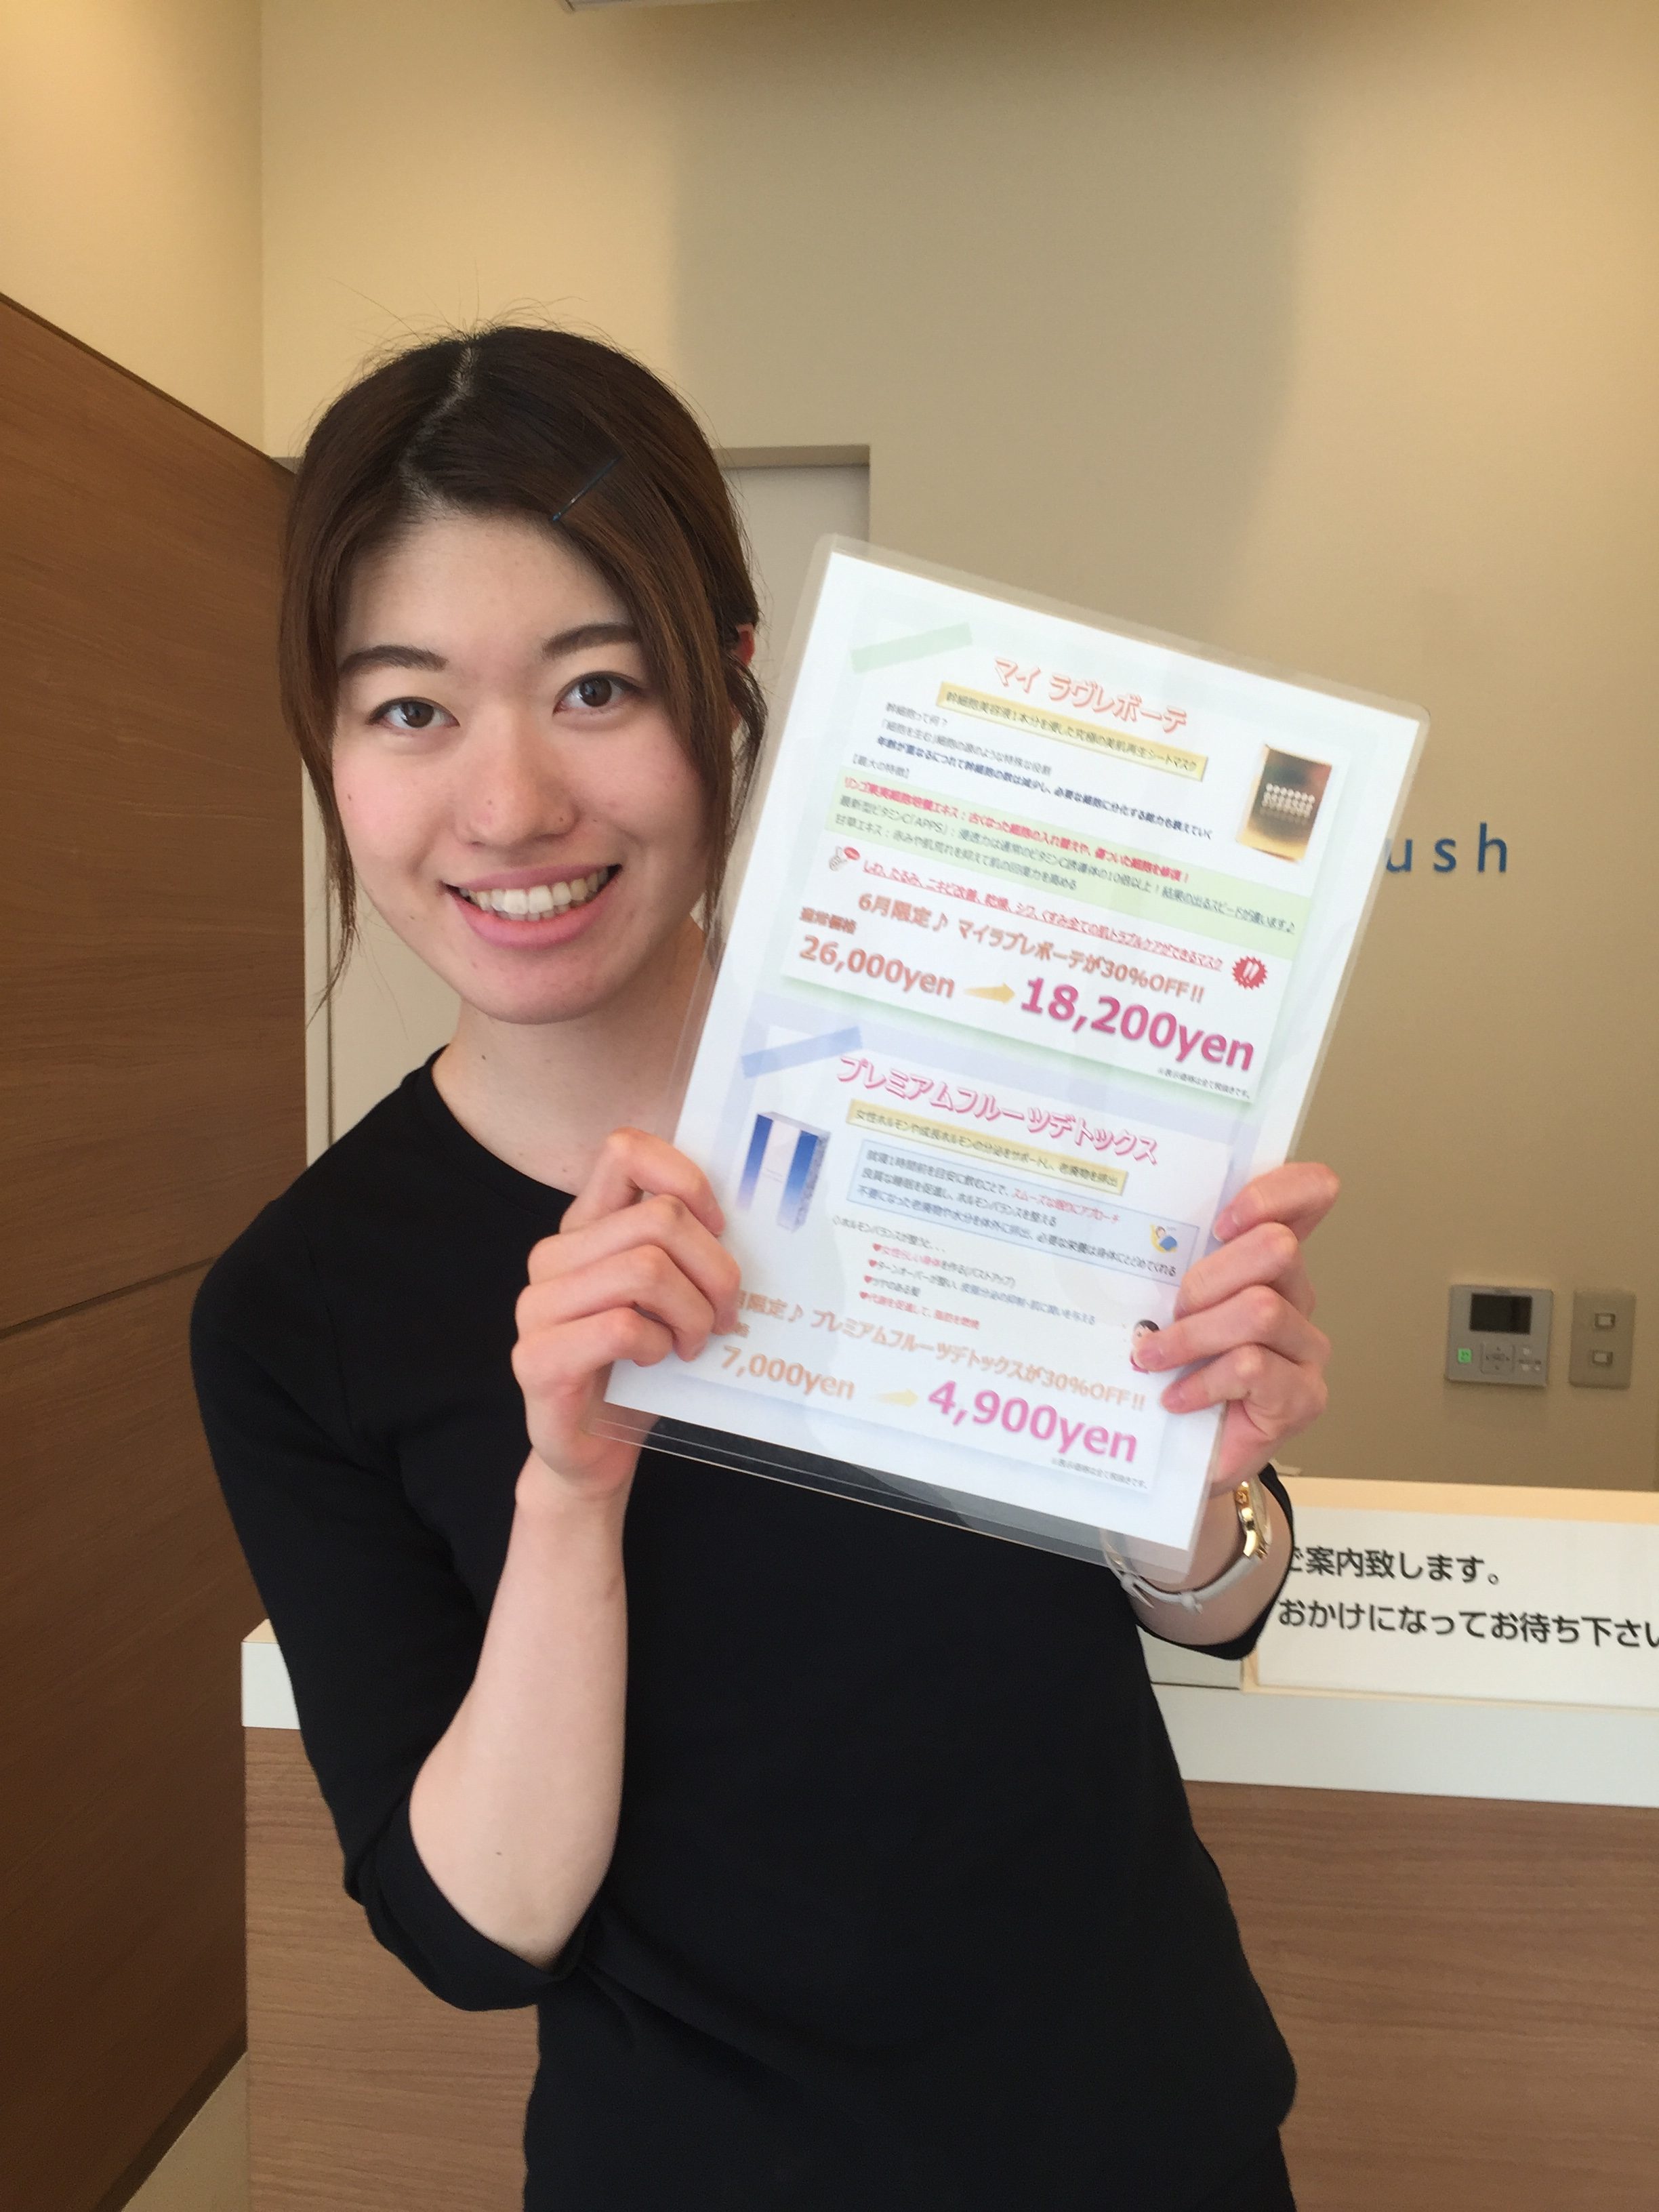 マイ ラヴレボーテ
幹細胞美容液1本分を浸した究極の美肌再生シートマスク
幹細胞って何？
「細胞を生む」細胞の源のような特殊な役割
年齢が重なるにつれて幹細胞の数は減少し、必要な細胞に分化する能力も衰えていく
【最大の特徴】
リンゴ果実細胞培養エキス：古くなった細胞の入れ替えや、傷ついた細胞を修復！
最新型ビタミンC「APPS」：浸透力は通常のビタミンC誘導体の10倍以上！結果の出るスピードが違います♪
甘草エキス：赤みや肌荒れを抑えて肌の回復力を高める
しわ、たるみ、ニキビ改善、乾燥、シワ、くすみ全ての肌トラブルケアができるマスク
6月限定♪ マイラブレボーテが30%OFF!!
通常価格
26,000yen 18,200yen
※表示価格は全て税抜きです。
プレミアムフルーツデトックス
女性ホルモンや成長ホルモンの分泌をサポートし、老廃物を排出
就寝1時間前を目安に飲むことで、スムーズな眠りにアプローチ
良質な睡眠を促進し、ホルモンバランスを整える
不要になった老廃物や水分を体外に排出、必要な栄養は身体にとどめてくれる
◇ホルモンバランスが整うと...
♥女性らしい身体を作る(バストアップ)
♥ターンオーバーが整い、皮脂分泌の抑制・肌に潤いを与える
♥ツヤのある髪
♥代謝を促進して、脂肪を燃焼
月限定♪ プレミアムフルーツデトックスが30%OFF!!
7,000yen 4,900yen
※表示価格は全て税抜きです。
ush
ご案内致します。
おかけになってお待ち下さい